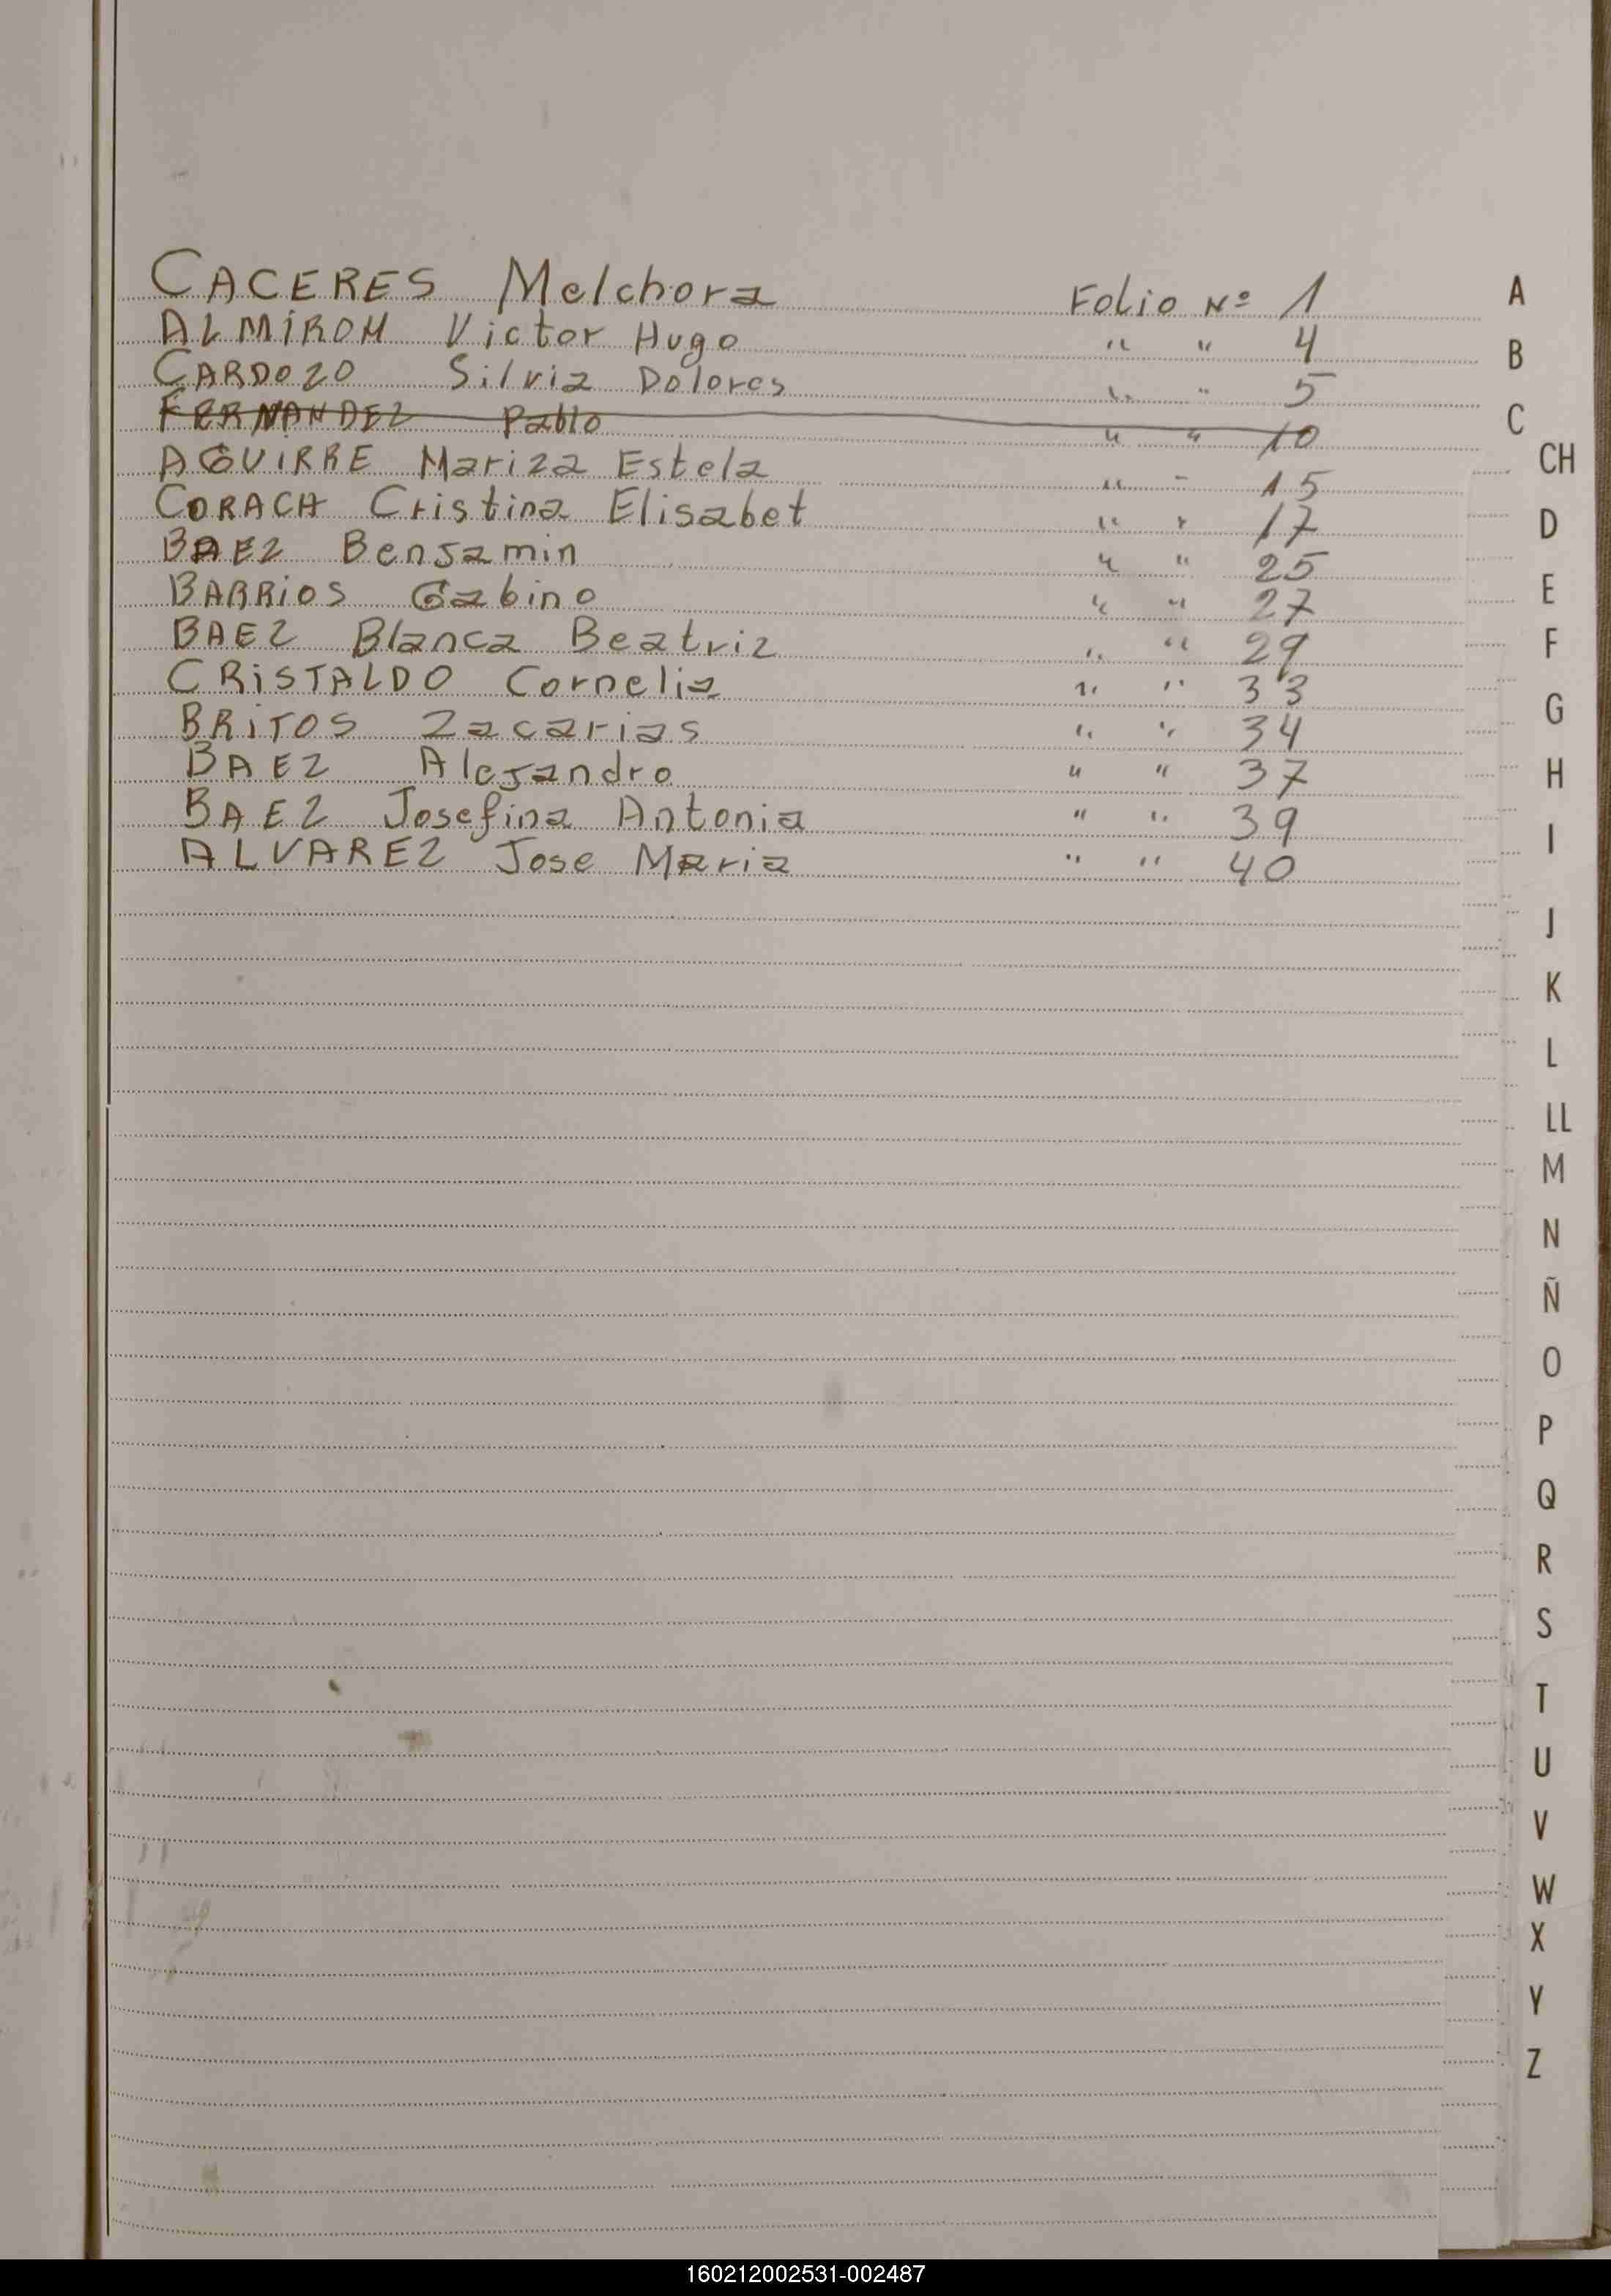 CACERES Melchora Folio Nº 1
ALMIRON Victor Hugo " " 4
CARDOZO Silvia Dolores " " 5
FERNANDEZ Pablo " " 10
AGUIRRE Mariza Estela " " 15
CORACH Cristina Elisabet " " 17
BAEZ Bensamin " " 25
BARRIOS Gabino " " 27
BAEZ Blanca Beatriz " " 29
CRISTALDO Cornelia " " 33
BRITOS Zacarias " " 34
BAEZ Alejandro " " 37
BAEZ Josefina Antonia " " 39
ALVAREZ Jose Maria " " 40
A
B
C
CH
D
E
F
G
H
I
J
K
L
LL
M
N
Ñ
O
P
Q
R
S
T
U
V
W
X
Y
Z
160212002531-002487